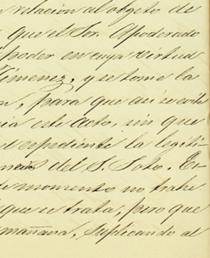 relación al objeto de
que el Sor. Apoderado
poder en cuya virtud
Jimenez, y se tome la
para que así se evite
este acto, sin que
expediente la legiti
del S. Soto. Er
momento no trate
que se trata, pero que
mañana, suplicando al